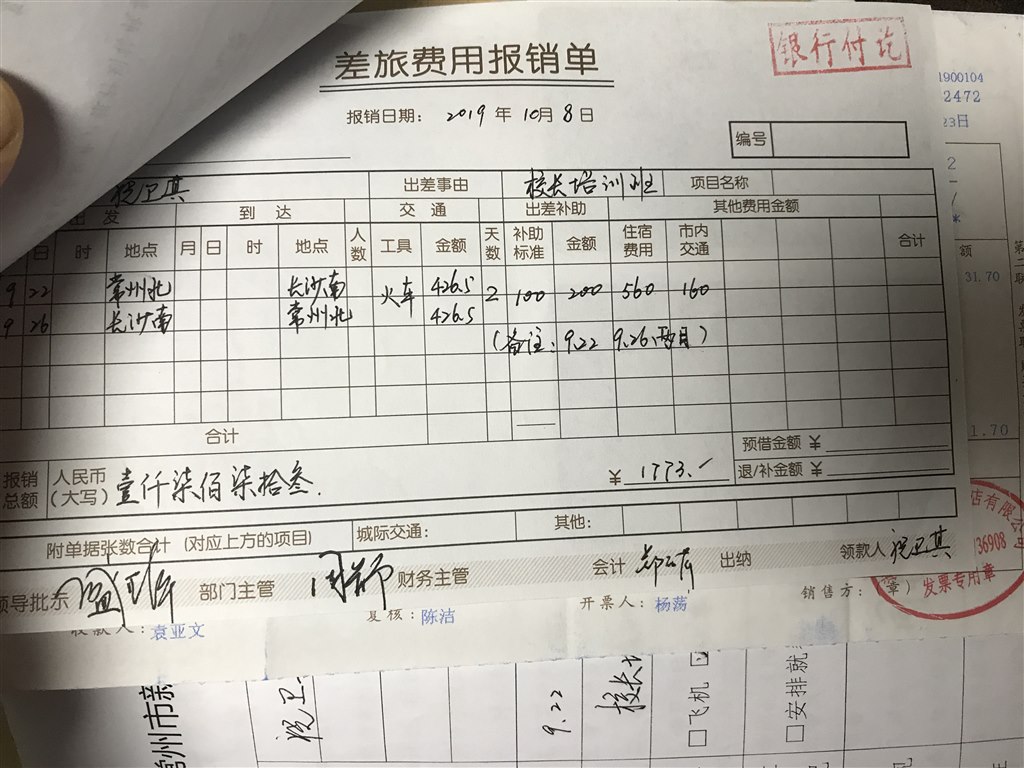 差旅费用报销单
银行付讫
报销日期： 2019 年 10月 8 日
编号
1900104
2472
23日
祝卫其 出差事由 校长培训班 项目名称
出 发 到 达 交 通 出差补助 其他费用金额
日 时 地点 月 日 时 地点 人数 工具 金额 天数 补助标准 金额 住宿费用 市内交通 合计
9 22 常州北 长沙南 火车 426.5 2 100 200 560 160
9 26 长沙南 常州北 426.5
(备注：9.22 9.26两日)
额
31.70
合计 预借金额 ¥
1.70
报销总额 人民币(大写) 壹仟柒佰柒拾叁. ¥ 1773.- 退/补金额 ¥
附单据张数合计 (对应上方的项目) 城际交通： 其他：
领导批示 部门主管 财务主管 会计 出纳 领款人 祝卫其
36908
发票专用章
收款人：袁亚文 复核：陈洁 开票人：杨荡 销售方：（章）
常州市新
祝卫
9.22
校长培
□飞机
□安排就